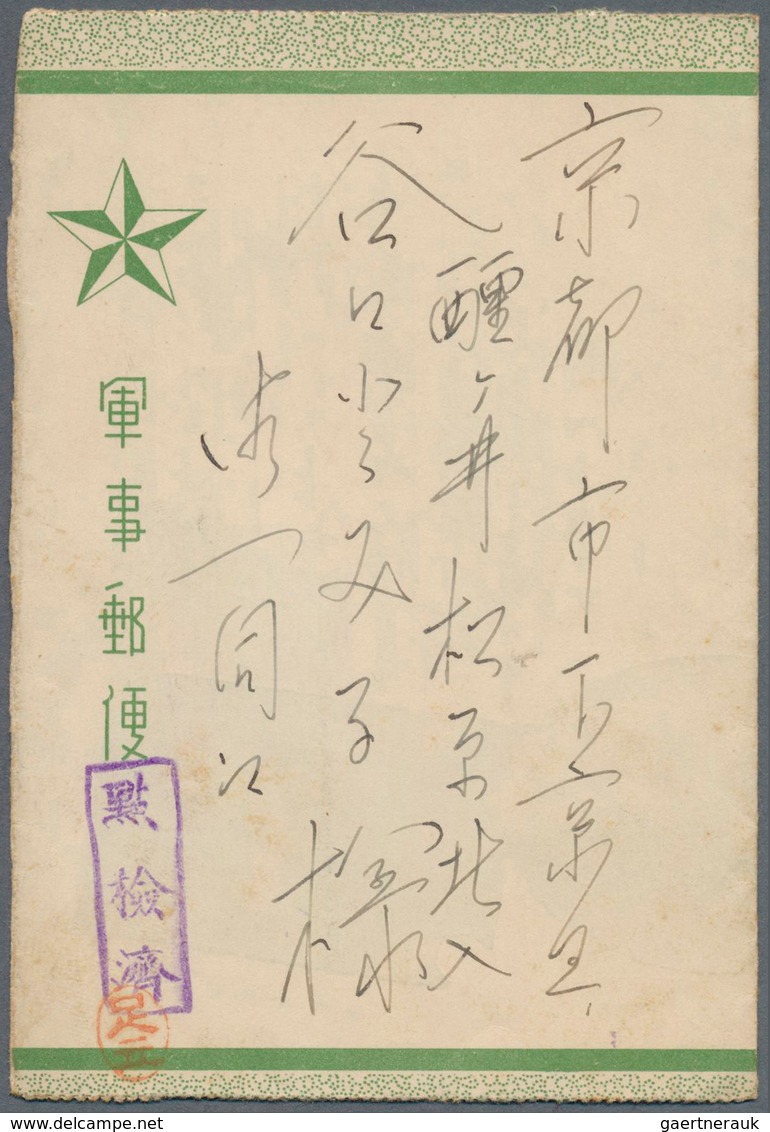 京都市下京区
醒ヶ井松原北入
谷口小ゑみ子様
皆一同江
軍事郵便
點檢濟
足立
www.delcampe.net
gaertnerauk